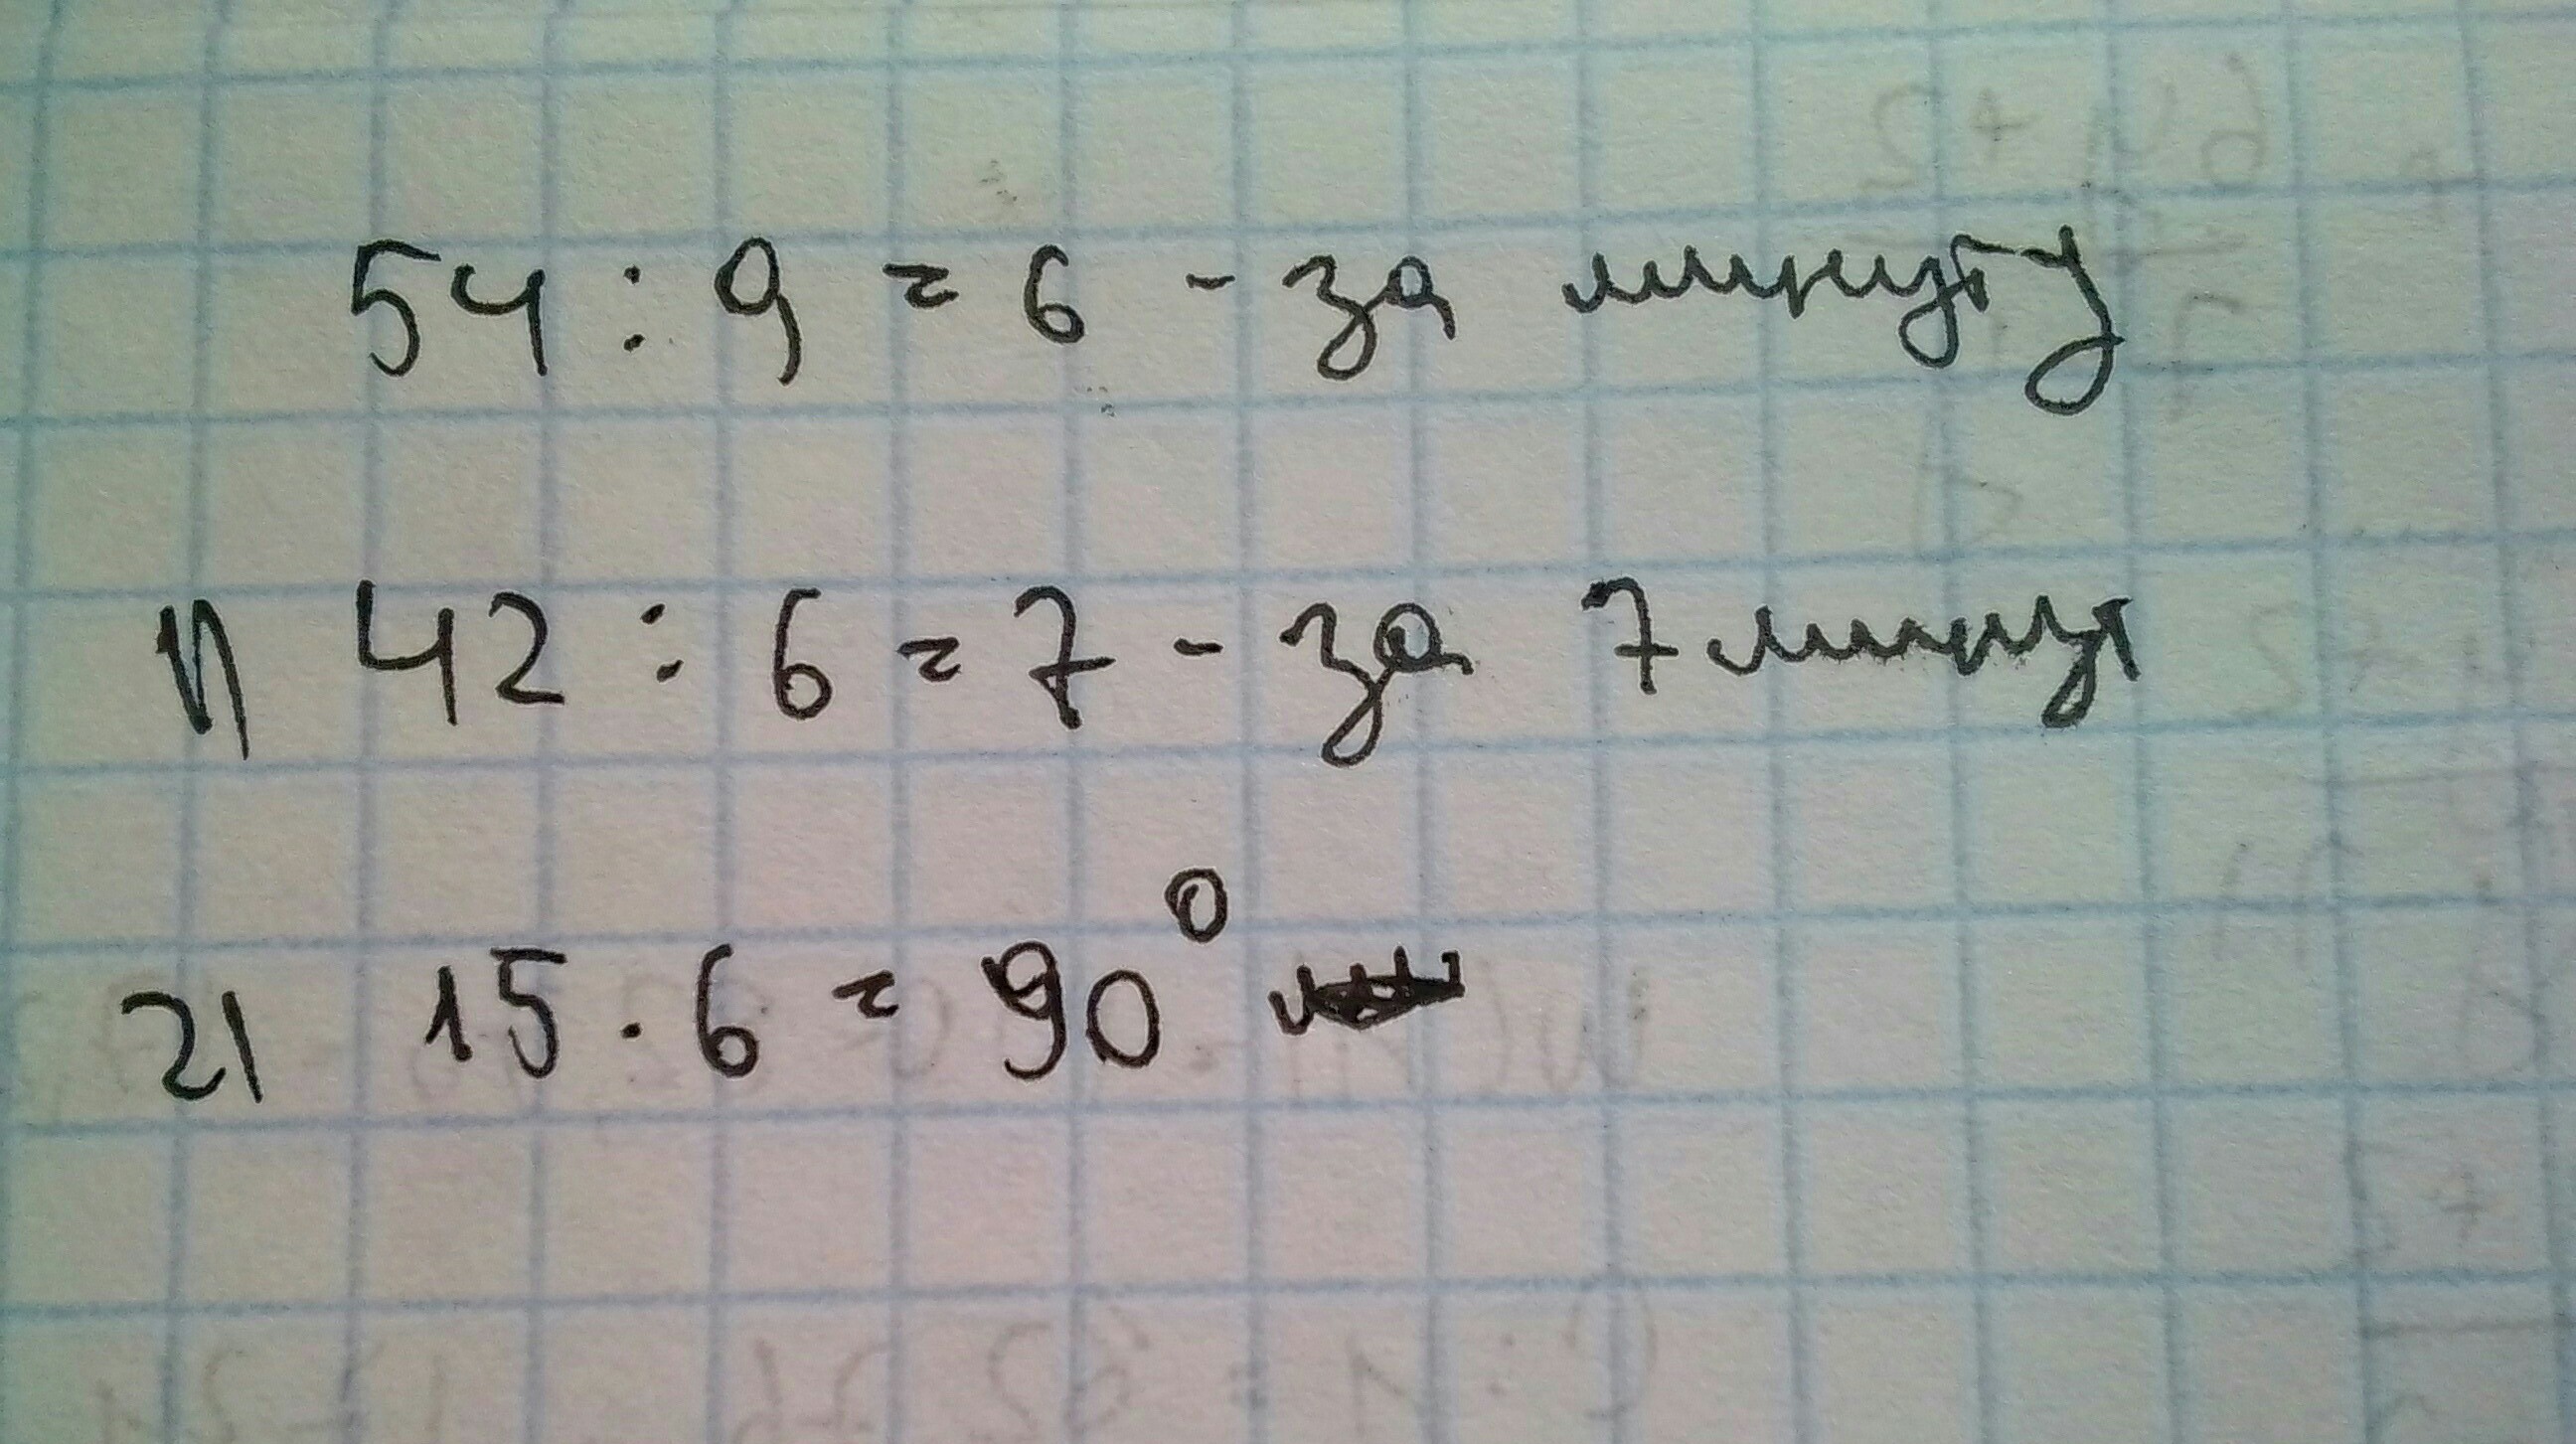 54 : 9 = 6 - за минуту
1) 42 : 6 = 7 - за 7 минут
2) 15 · 6 = 90°